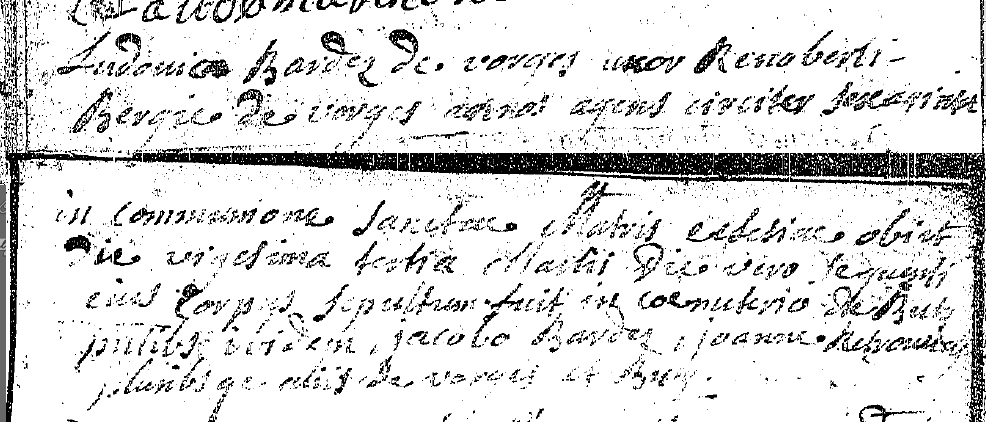 Ludovica Bardez de vorges uxor Renoberti-
Bergie de vorges annos agens circiter sexaginta
in communione sanctae Matris ecclesiae obiit
Die vigesima tertia Martii Die vero sequenti
eius Corpus sepultum fuit in coemiterio de Buss
ibidem, jacobo Bardez, joanne
pluribsque aliis de vorges et Buss.